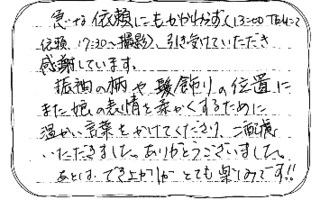 急する依頼にもかかわらず(13:00 TELにて
依頼 17:30〜撮影)、引き受けていただき
感謝しています。
振袖の柄や髪飾りの位置に
また娘の表情を柔かくするために
温かい言葉をかけてくださり、ご配慮
いただきました。ありがとうございました。
あとは、できよがりがとても楽しみです!!